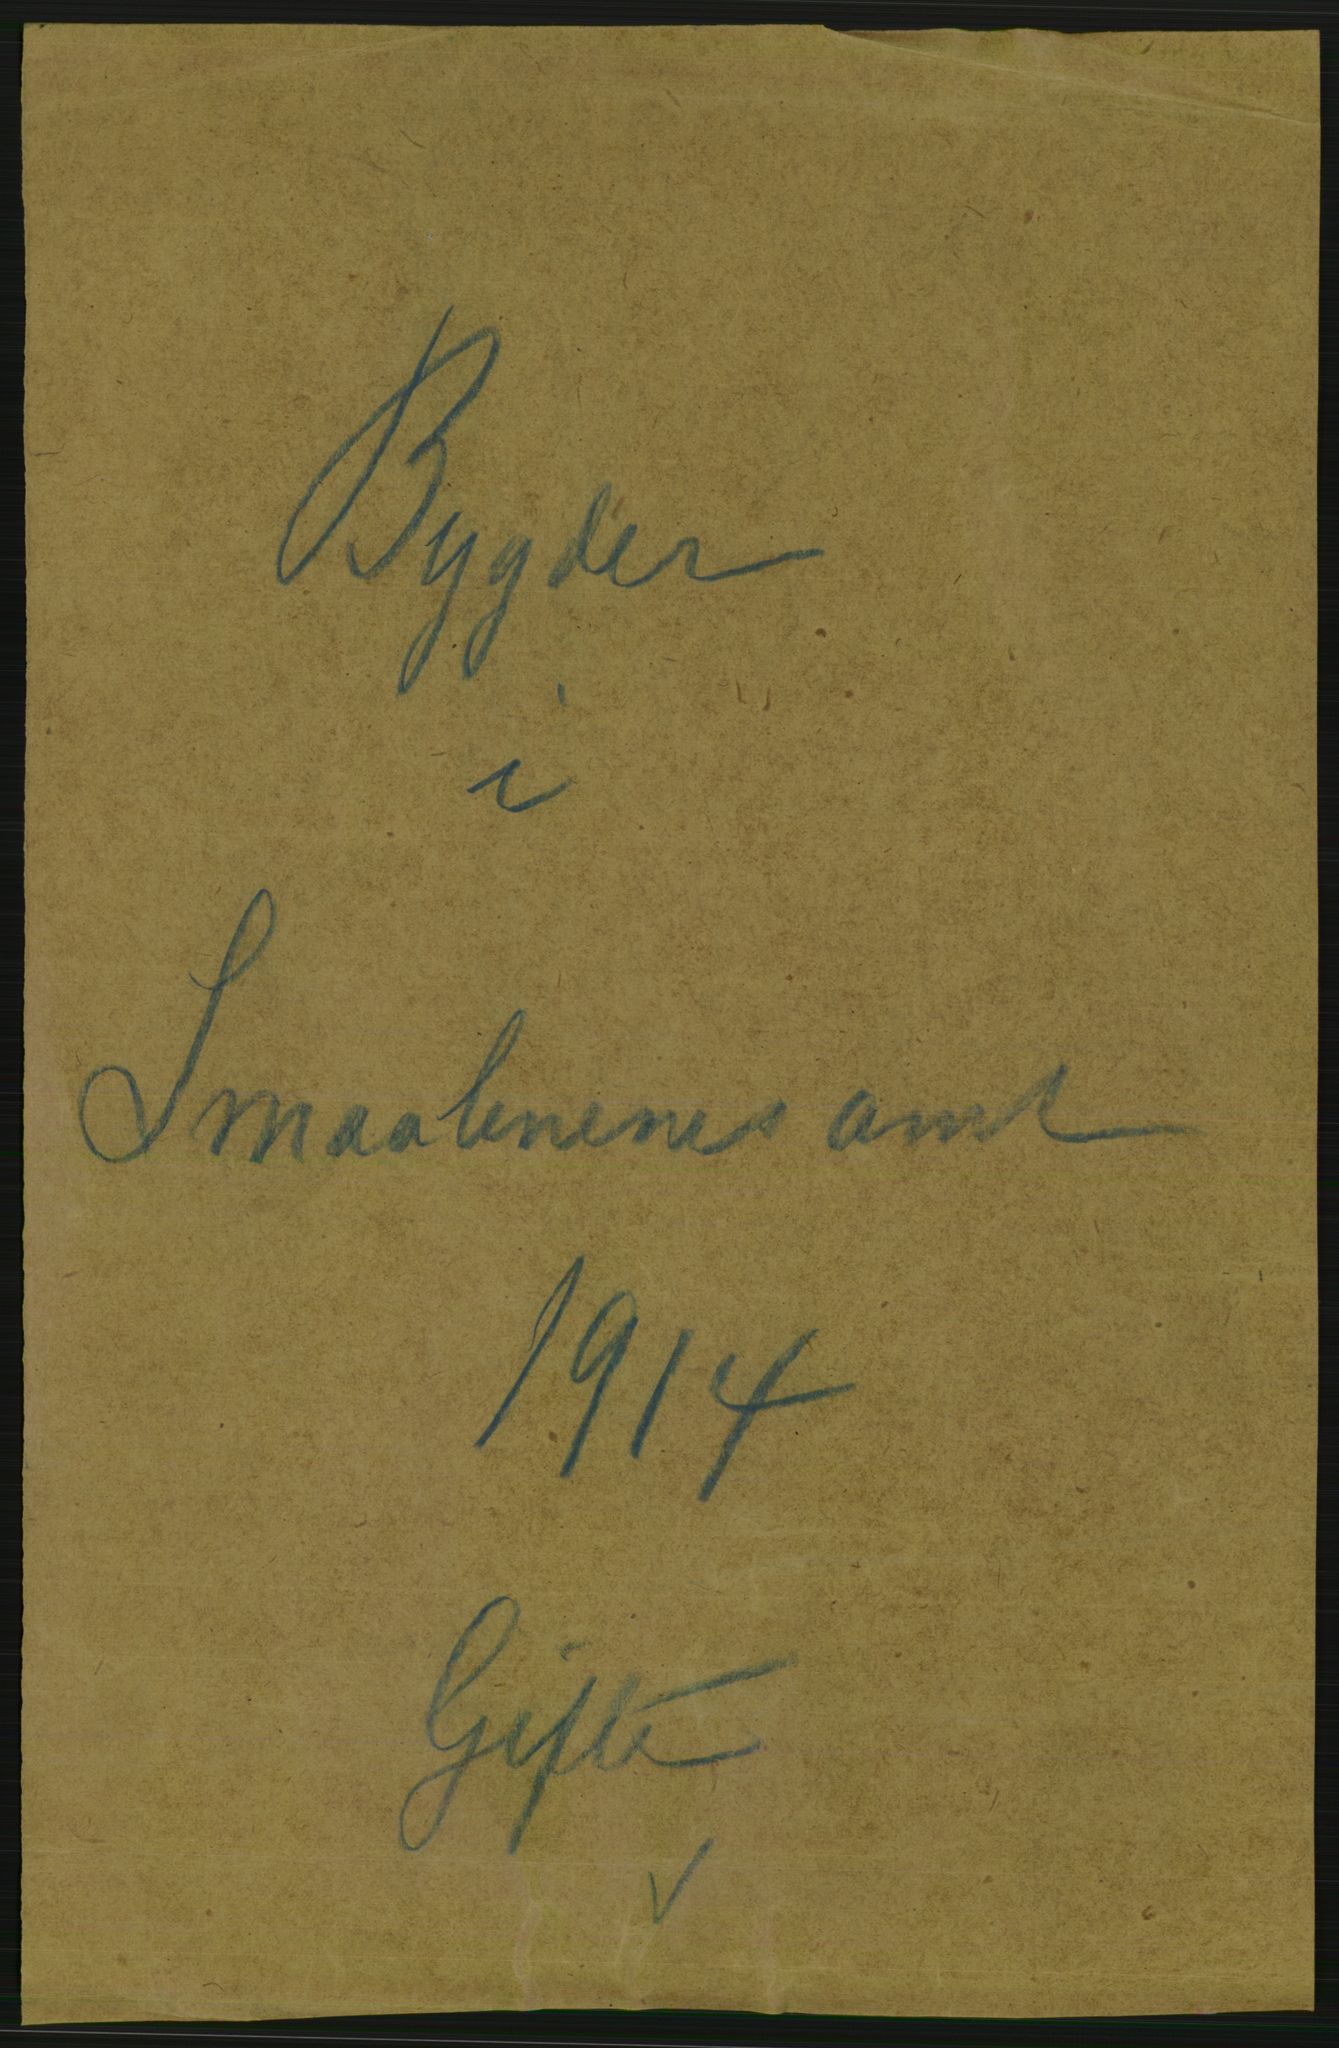 Bygder
i
Smaalenenes amt
1914
Gifte